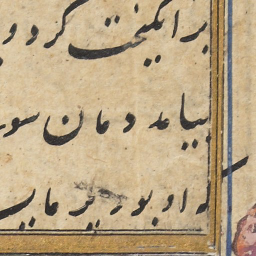 برانگیخت کرد و
بیامد دمان سو
که او بود پر مایـ